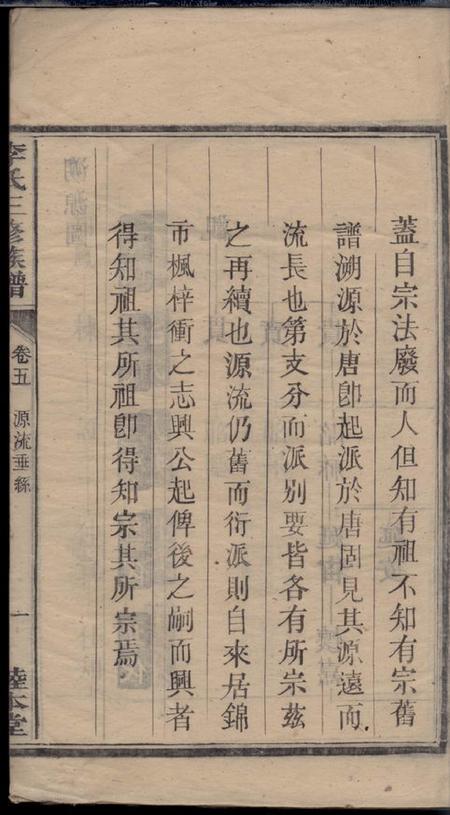 蓋自宗法廢而人但知有祖不知有宗舊
譜溯源於唐卽起派於唐固見其源遠而
流長也第支分而派別要皆各有所宗茲
之再續也源流仍舊而衍派則自來居錦
市楓梓衝之志興公起俾後之嗣而興者
得知祖其所祖卽得知宗其所宗焉
李氏三修族譜
卷五
源流垂絲
一
本堂